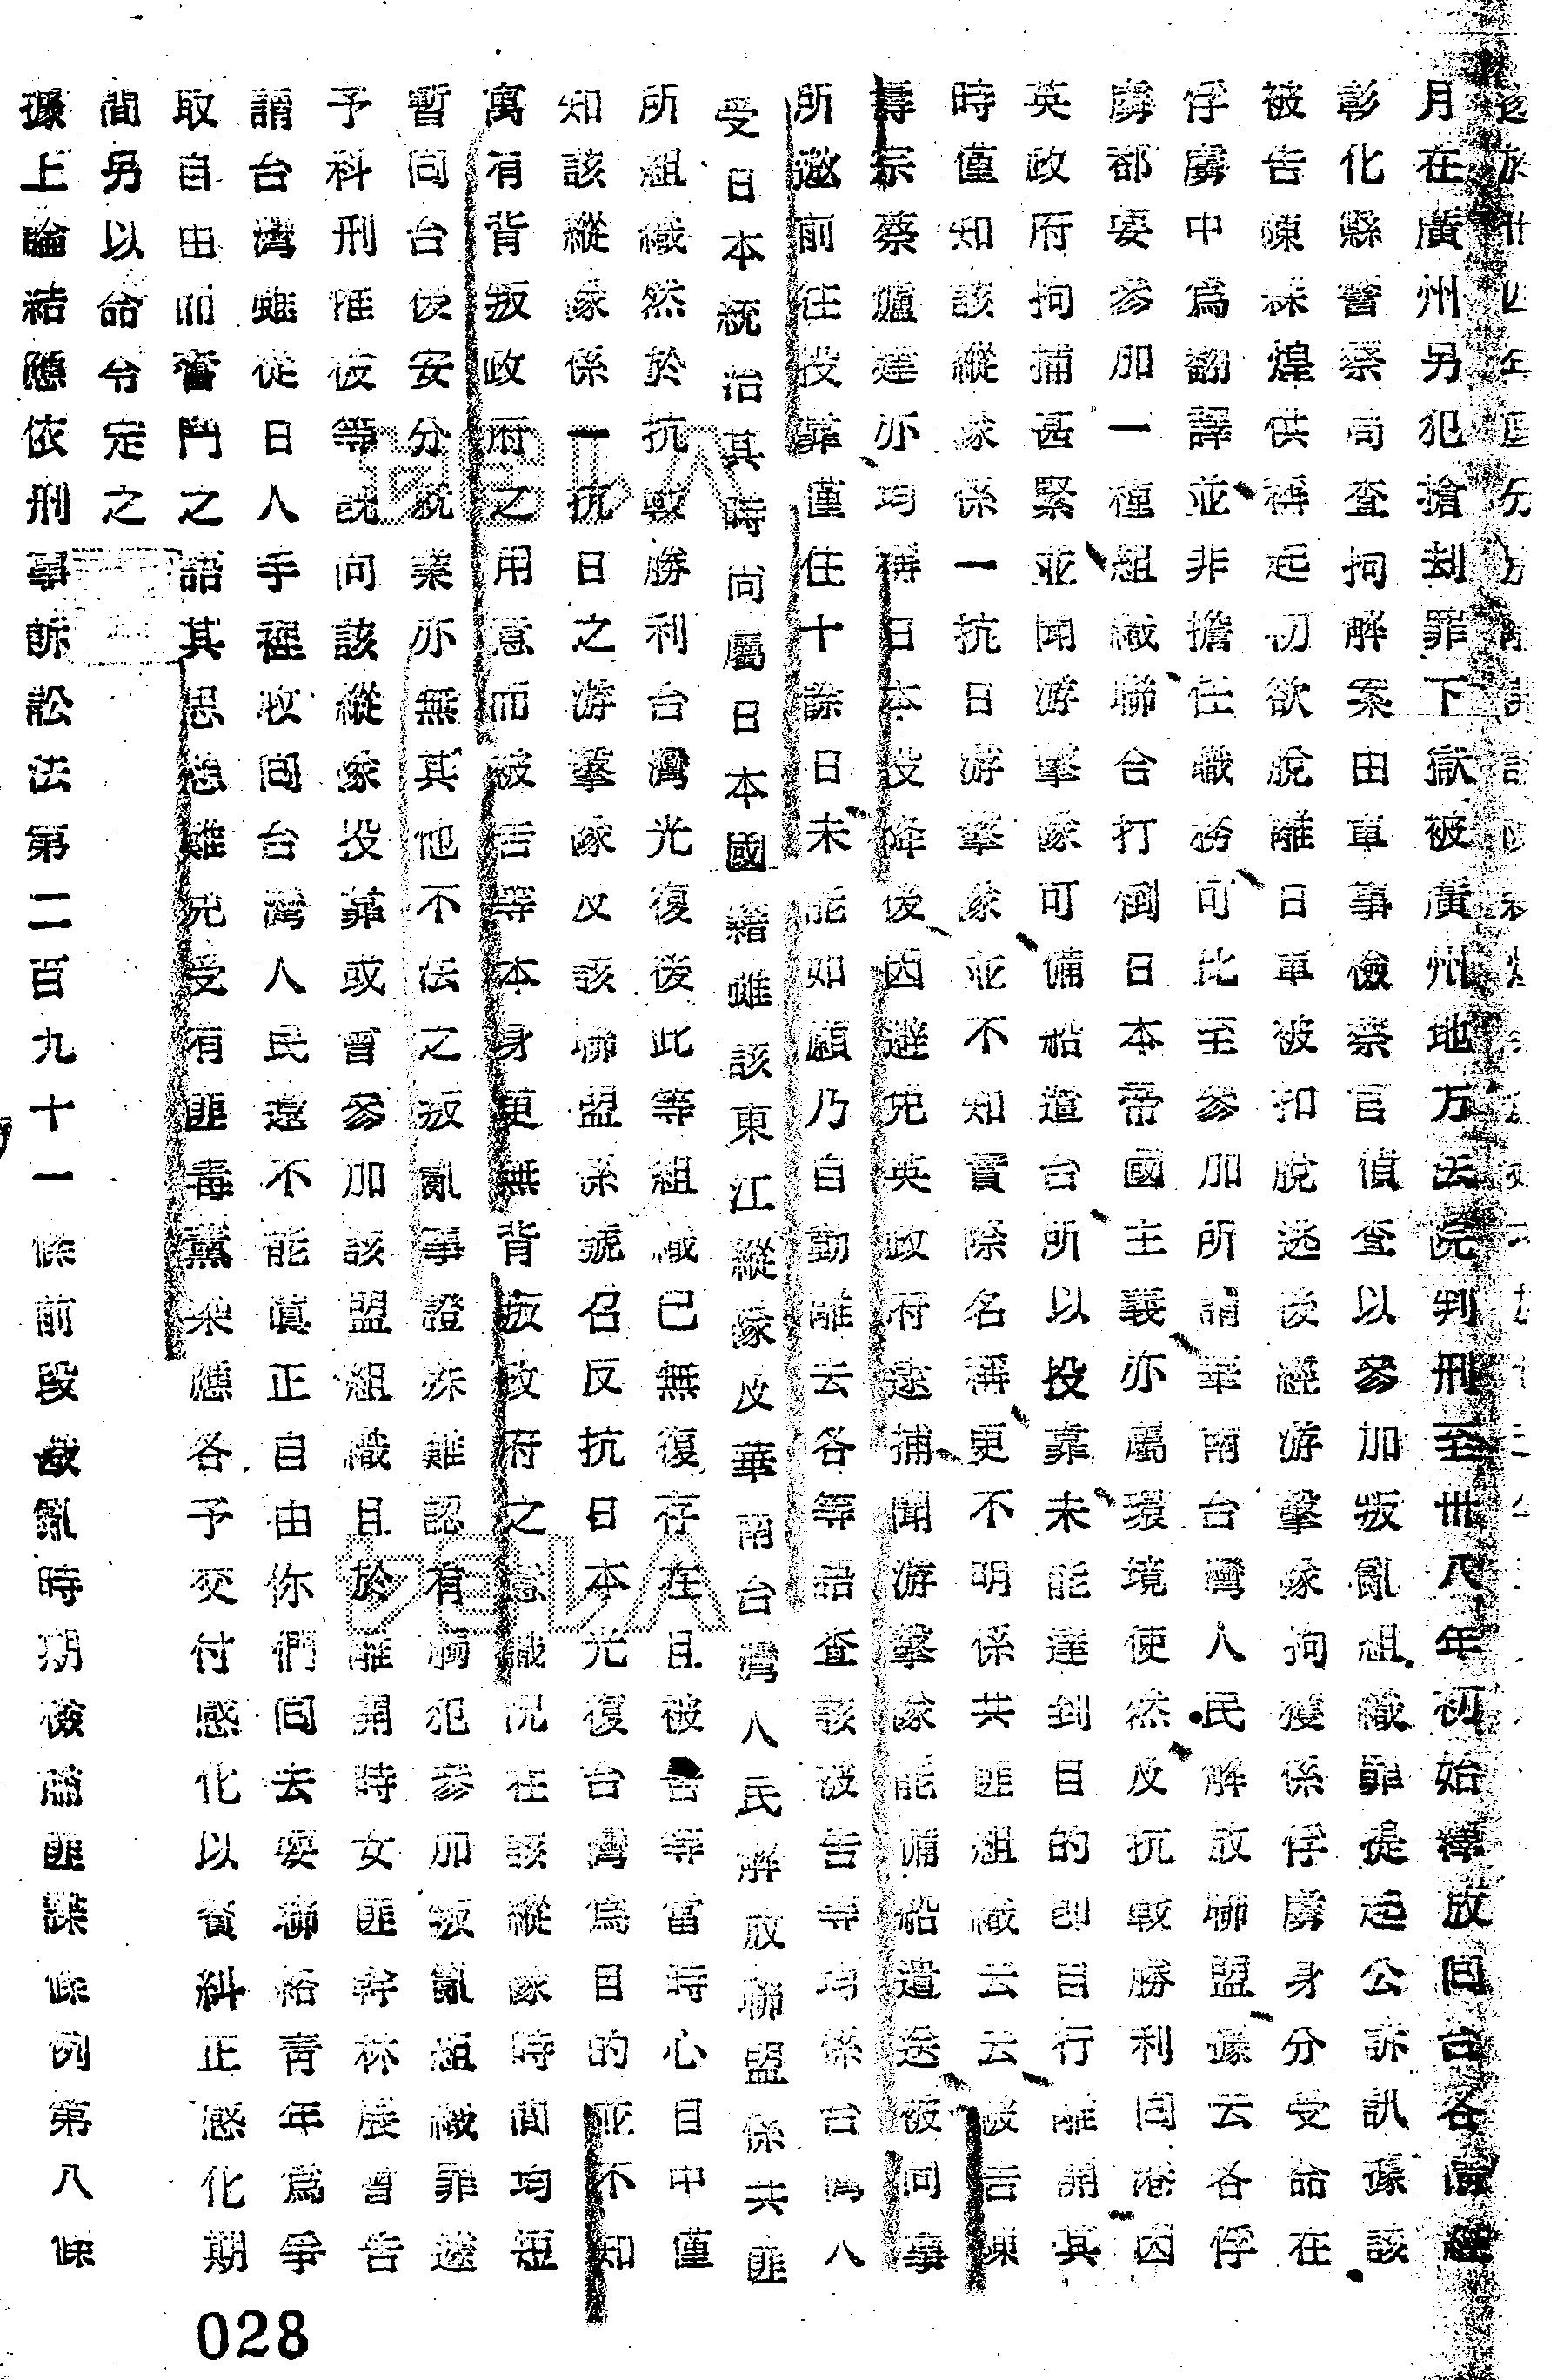 月在廣州另犯搶刦罪下獄被廣州地方法院判刑至卅八年初始釋放回台各情經
彰化縣警察局查拘解案由軍事檢察官偵查以參加叛亂組織罪提起公訴訊據該
被告陳煌供稱起初欲脫離日軍被扣脫逃後經游擊隊拘獲係俘虜身分受命在
俘虜中為翻譯並非擔任職務可比至參加所謂華南台灣人民解放聯盟據云各俘
虜都要參加一種組織聯合打倒日本帝國主義亦屬環境使然及抗戰勝利回港因
英政府拘捕甚緊並聞游擊隊可備船遣台所以投靠未能達到目的即自行離開其
時僅知該縱隊係一抗日游擊隊並不知實際名稱更不明係共匪組織云云被告陳
壽宗蔡爐達亦均稱日本投降後因避免英政府逮捕聞游擊隊能備船遣送被同事
所邀前往投靠僅住十餘日未能如願乃自動離去各等語查該被告等均係台灣人
受日本統治其時尚屬日本國籍雖該東江縱隊及華南台灣人民解放聯盟係共匪
所組織然於抗戰勝利台灣光復後此等組織已無復存在且被告等當時心目中僅
知該縱隊係一抗日之游擊隊及該聯盟係號召反抗日本光復台灣為目的並不知
寓有背叛政府之用意而被告等本身更無背叛政府之意識況在該縱隊時間均短
暫回台後安分就業亦無其他不法之叛亂事證殊難認有觸犯參加叛亂組織罪遽
予科刑惟彼等既向該縱隊投靠或曾參加該盟組織且於離開時女匪幹林展曾告
謂台灣雖從日人手裡收回台灣人民還不能真正自由你們回去要聯絡青年為爭
取自由而奮鬥之語其思想難免受有匪毒薰染應各予交付感化以資糾正感化期
間另以命令定之
據上論結應依刑事訴訟法第二百九十一條前段戡亂時期檢肅匪諜條例第八條
028